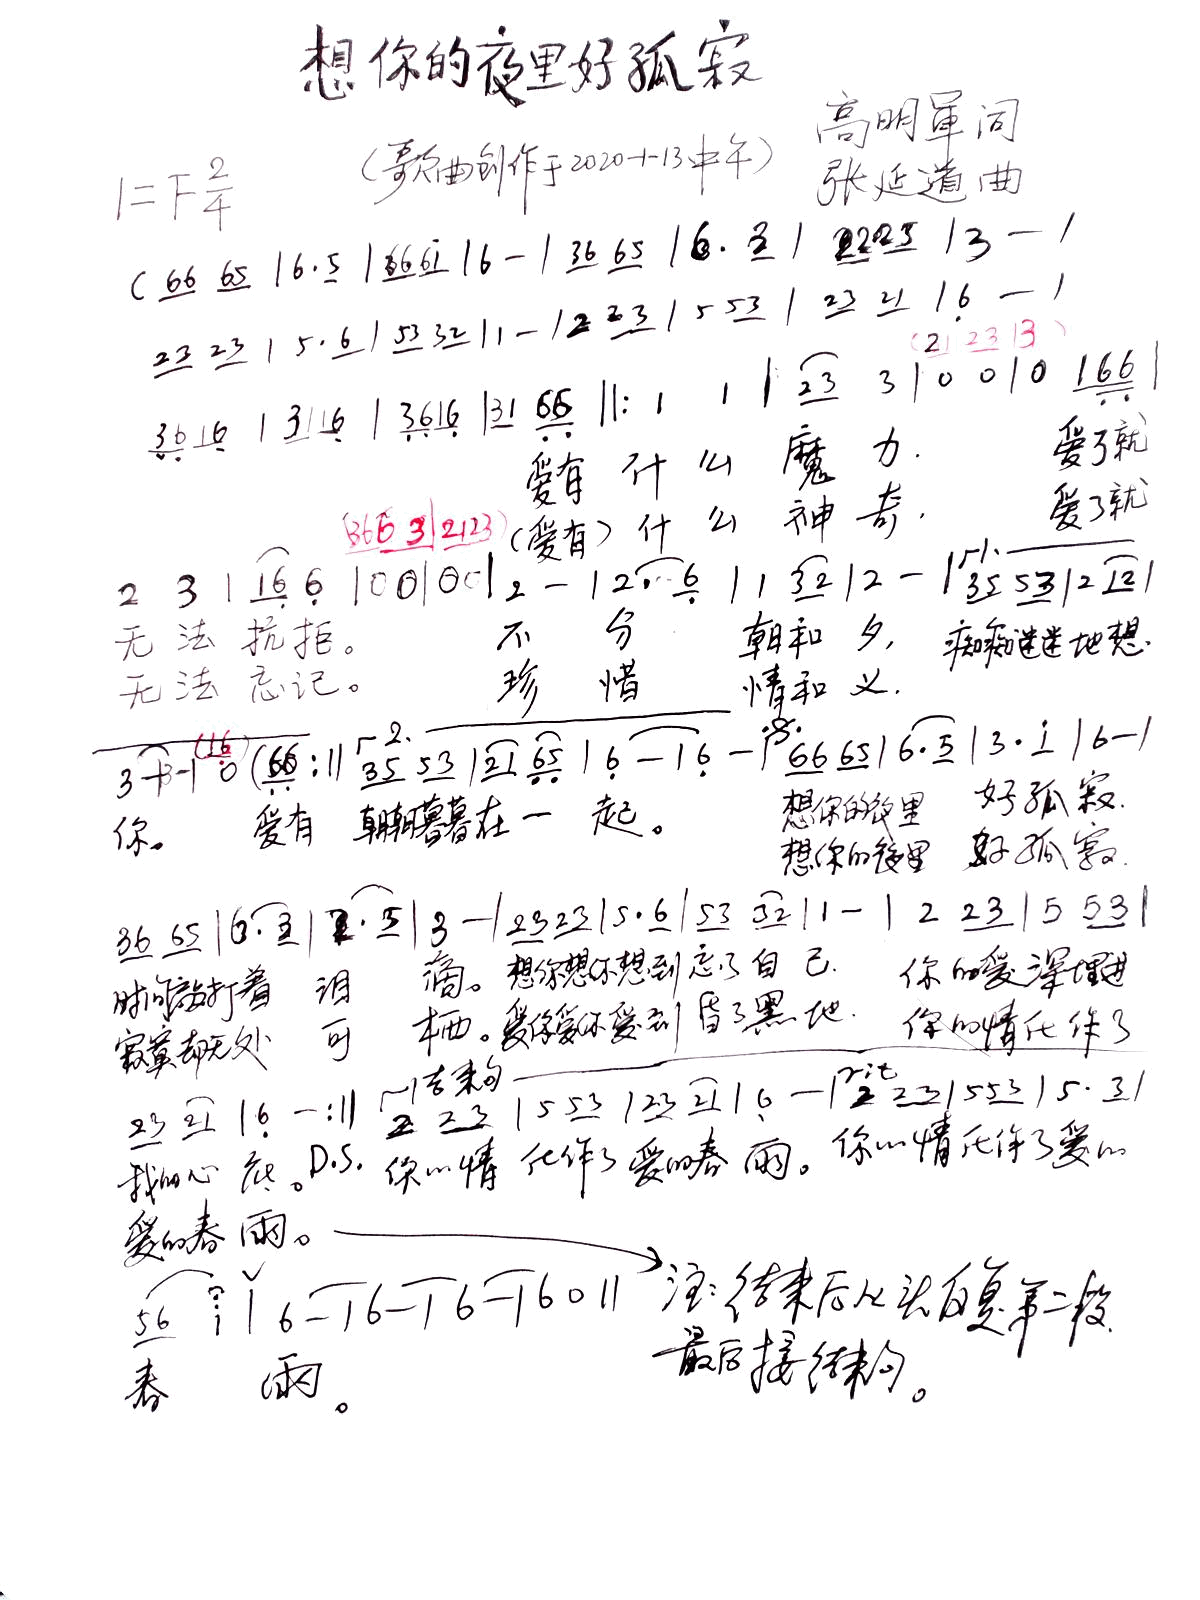 想你的夜里好孤寂
高明军词
(歌曲创作于2020-1-13中午)
张延道曲
1=F 2/4
( 66 65 | 6·5 | 6661 | 6 - | 36 65 | 6·3 | 2223 | 3 - |
23 23 | 5·6 | 53 32 | 1 - | 2 23 | 5 53 | 23 21 | 6 - |
(21 23 | 3)
36 16 | 31 16 | 3616 | 31 66 ||: 1 1 | 23 3 | 0 0 | 0 166 |
爱有 什么 魔力. 爱了就
(爱有) 什么 神奇. 爱了就
(366 3 | 2123)
2 3 | 16 6 | 00 | 00 | 2 - | 2·6 | 1 32 | 2 - | 1. 35 53 | 2 12 |
无法抗拒。 不分 朝和夕, 痴痴迷迷地想.
无法忘记。 珍惜 情和义.
(16)
3 - | 3 - | 0 (66 :|| 2. 35 53 | 21 65 | 6 - | 6 - | 66 65 | 6·5 | 3·i | 6 - |
你。 爱有 朝朝暮暮在一起。 想你的夜里 好孤寂.
想你的夜里 好孤寂.
36 65 | 6·3 | 2·3 | 3 - | 23 23 | 5·6 | 53 32 | 1 - | 2 23 | 5 53 |
时间敲打着 泪滴。 想你想你想到忘了自己. 你的爱深埋进
寂寞却无处 可栖。 爱你爱你爱到昏了黑地. 你的情化作了
结束句 rit
23 21 | 6 - :|| 2 23 | 5 53 | 23 21 | 6 - | 2 23 | 553 | 5·3 |
我的心底。D.S. 你的情 化作了爱的春雨。你的情化作了爱的
爱的春雨。
56 i | 6 - | 6 - | 6 - | 6 0 || 注:结束后从头反复第二段
最后接结束句。
春 雨。